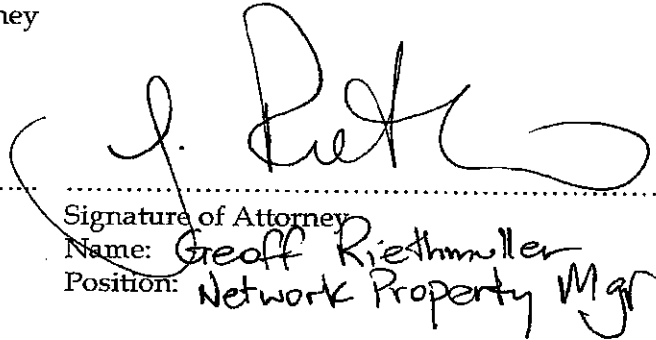 ney
G. Rieth
Signature of Attorney
Name: Geoff Riethmuller
Position: Network Property Mgr